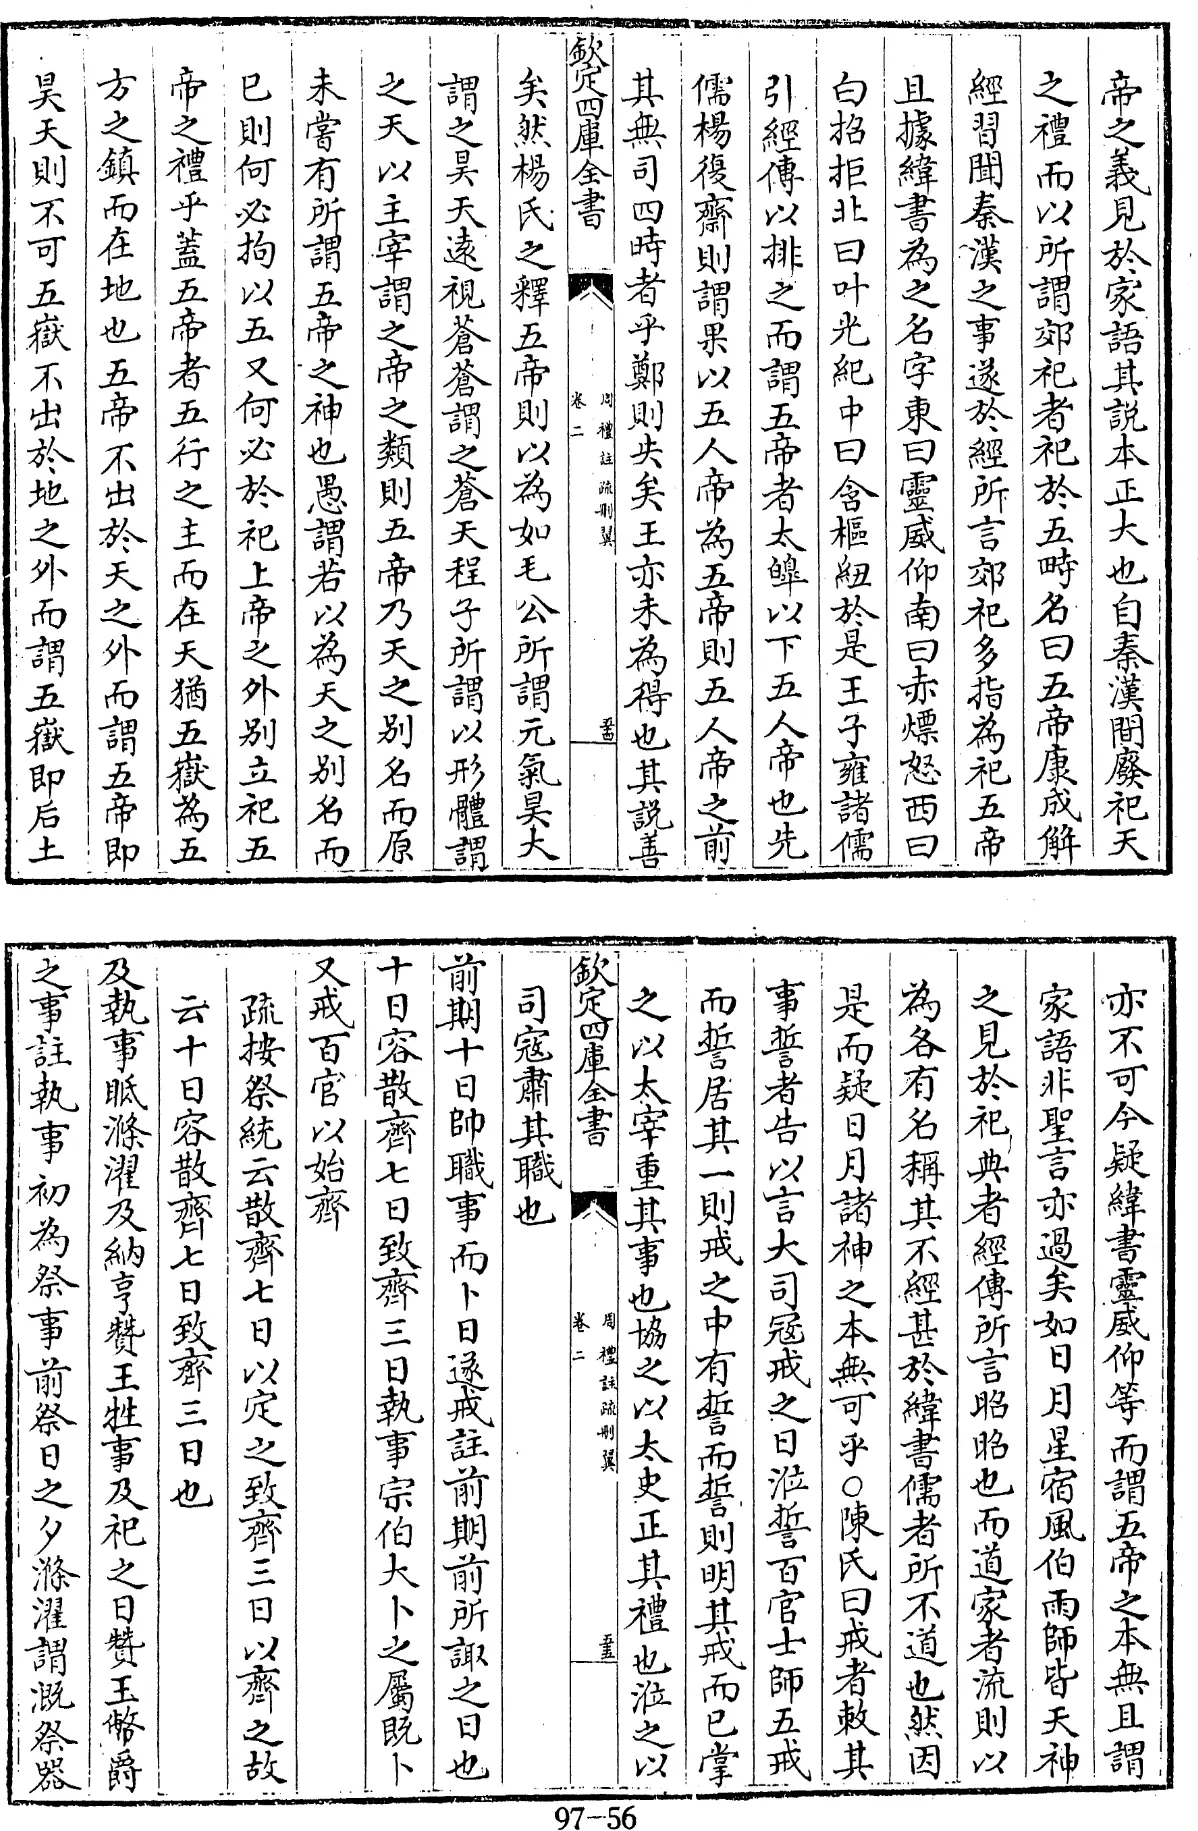 帝之義見於家語其説本正大也自秦漢間廢祀天
之禮而以所謂郊祀者祀於五畤名曰五帝康成解
經習聞秦漢之事遂於經所言郊祀多指為祀五帝
且據緯書為之名字東曰靈威仰南曰赤熛怒西曰
白招拒北曰叶光紀中曰含樞紐於是王子雍諸儒
引經傳以排之而謂五帝者太皥以下五人帝也先
儒楊復齋則謂果以五人帝為五帝則五人帝之前
其無司四時者乎鄭則失矣王亦未為得也其説善
欽定四庫全書
周禮註疏刪翼
卷二
五十四
矣然楊氏之釋五帝則以為如毛公所謂元氣昊大
謂之昊天遠視蒼蒼謂之蒼天程子所謂以形體謂
之天以主宰謂之帝之類則五帝乃天之别名而原
未嘗有所謂五帝之神也愚謂若以為天之别名而
已則何必拘以五又何必於祀上帝之外别立祀五
帝之禮乎蓋五帝者五行之主而在天猶五嶽為五
方之鎮而在地也五帝不出於天之外而謂五帝即
昊天則不可五嶽不出於地之外而謂五嶽即后土
亦不可今疑緯書靈威仰等而謂五帝之本無且謂
家語非聖言亦過矣如日月星宿風伯雨師皆天神
之見於祀典者經傳所言昭昭也而道家者流則以
為各有名稱其不經甚於緯書儒者所不道也然因
是而疑日月諸神之本無可乎○陳氏曰戒者敕其
事誓者告以言大司寇戒之日涖誓百官士師五戒
而誓居其一則戒之中有誓而誓則明其戒而已掌
之以太宰重其事也協之以太史正其禮也涖之以
欽定四庫全書
周禮註疏刪翼
卷二
五十五
司寇肅其職也
前期十日帥職事而卜日遂戒註前期前所諏之日也
十日容散齊七日致齊三日執事宗伯大卜之屬既卜
又戒百官以始齊
疏按祭統云散齊七日以定之致齊三日以齊之故
云十日容散齊七日致齊三日也
及執事眡滌濯及納亨贊王牲事及祀之日贊玉幣爵
之事註執事初為祭事前祭日之夕滌濯謂溉祭器
97-56